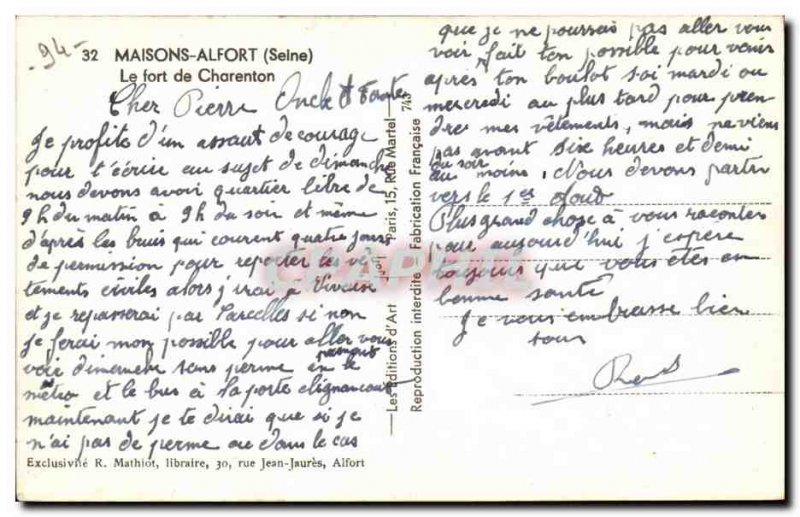 -94-
32 MAISONS-ALFORT (Seine)
Le fort de Charenton
Cher Pierre Oncle et Tante
Je profite d'un assaut de courage
pour t'écrire au sujet de dimanche
nous devons avoir quartier libre de
9h du matin à 9h du soir et même
d'après les bruis qui courent quatre jours
de permission pour reporter les vê-
tements civiles alors j'irai à
et je repasserai par Sarcelles si non
je ferai mon possible pour aller vous
voir dimanche sans perme en prenant le
métro et le bus à la porte clignancourt
maintenant je te dirai que si je
n'ai pas de perme ou dans le cas
Exclusivité R. Mathiot, libraire, 30, rue Jean-Jaurès, Alfort
Les Editions d'Art Paris, 15, Rue Martel
Reproduction interdite Fabrication Française
743
que je ne pourrais pas aller vous
voir fait ton possible pour venir
après ton boulot soi mardi ou
mercredi au plus tard pour pren-
dre mes vêtements, mais ne viens
pas avant six heures et demi
du soir
au moins, Nous devons partir
vers le 1er Aoud
Plus grand chose à vous raconter
pour aujourd'hui j'espère
toujours que vous êtes en
bonne santé
Je vous embrasse bien
tous
CPAPHIL